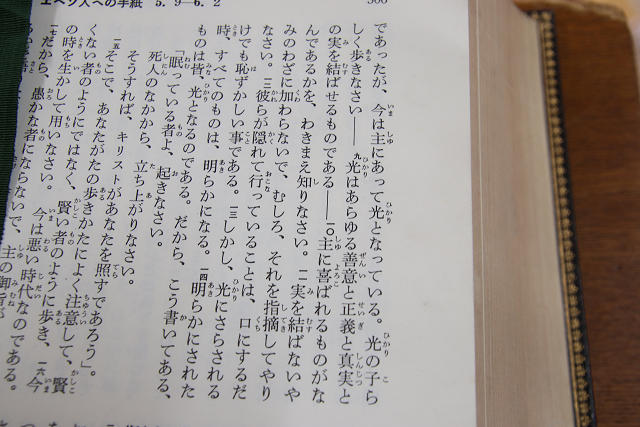 エペソ人への手紙 5. 9―6. 2
であったが、今は主にあって光となっている。光の子ら
しく歩きなさい―― 九光はあらゆる善意と正義と真実と
の実を結ばせるものである――一〇主に喜ばれるものがな
んであるかを、わきまえ知りなさい。一一実を結ばないや
みのわざに加わらないで、むしろ、それを指摘してやり
なさい。一二彼らが隠れて行っていることは、口にするだ
けでも恥ずかしい事である。一三しかし、光にさらされる
時、すべてのものは、明らかになる。一四明らかにされた
ものは皆、光となるのである。だから、こう書いてある、
「眠っている者よ、起きなさい。
死人のなかから、立ち上がりなさい。
そうすれば、キリストがあなたを照すであろう」。
一五そこで、あなたがたの歩きかたによく注意して、賢
くない者のようにではなく、賢い者のように歩き、一六今
の時を生かして用いなさい。今は悪い時代なのである。
一七だから、愚かな者にならないで、主の御旨